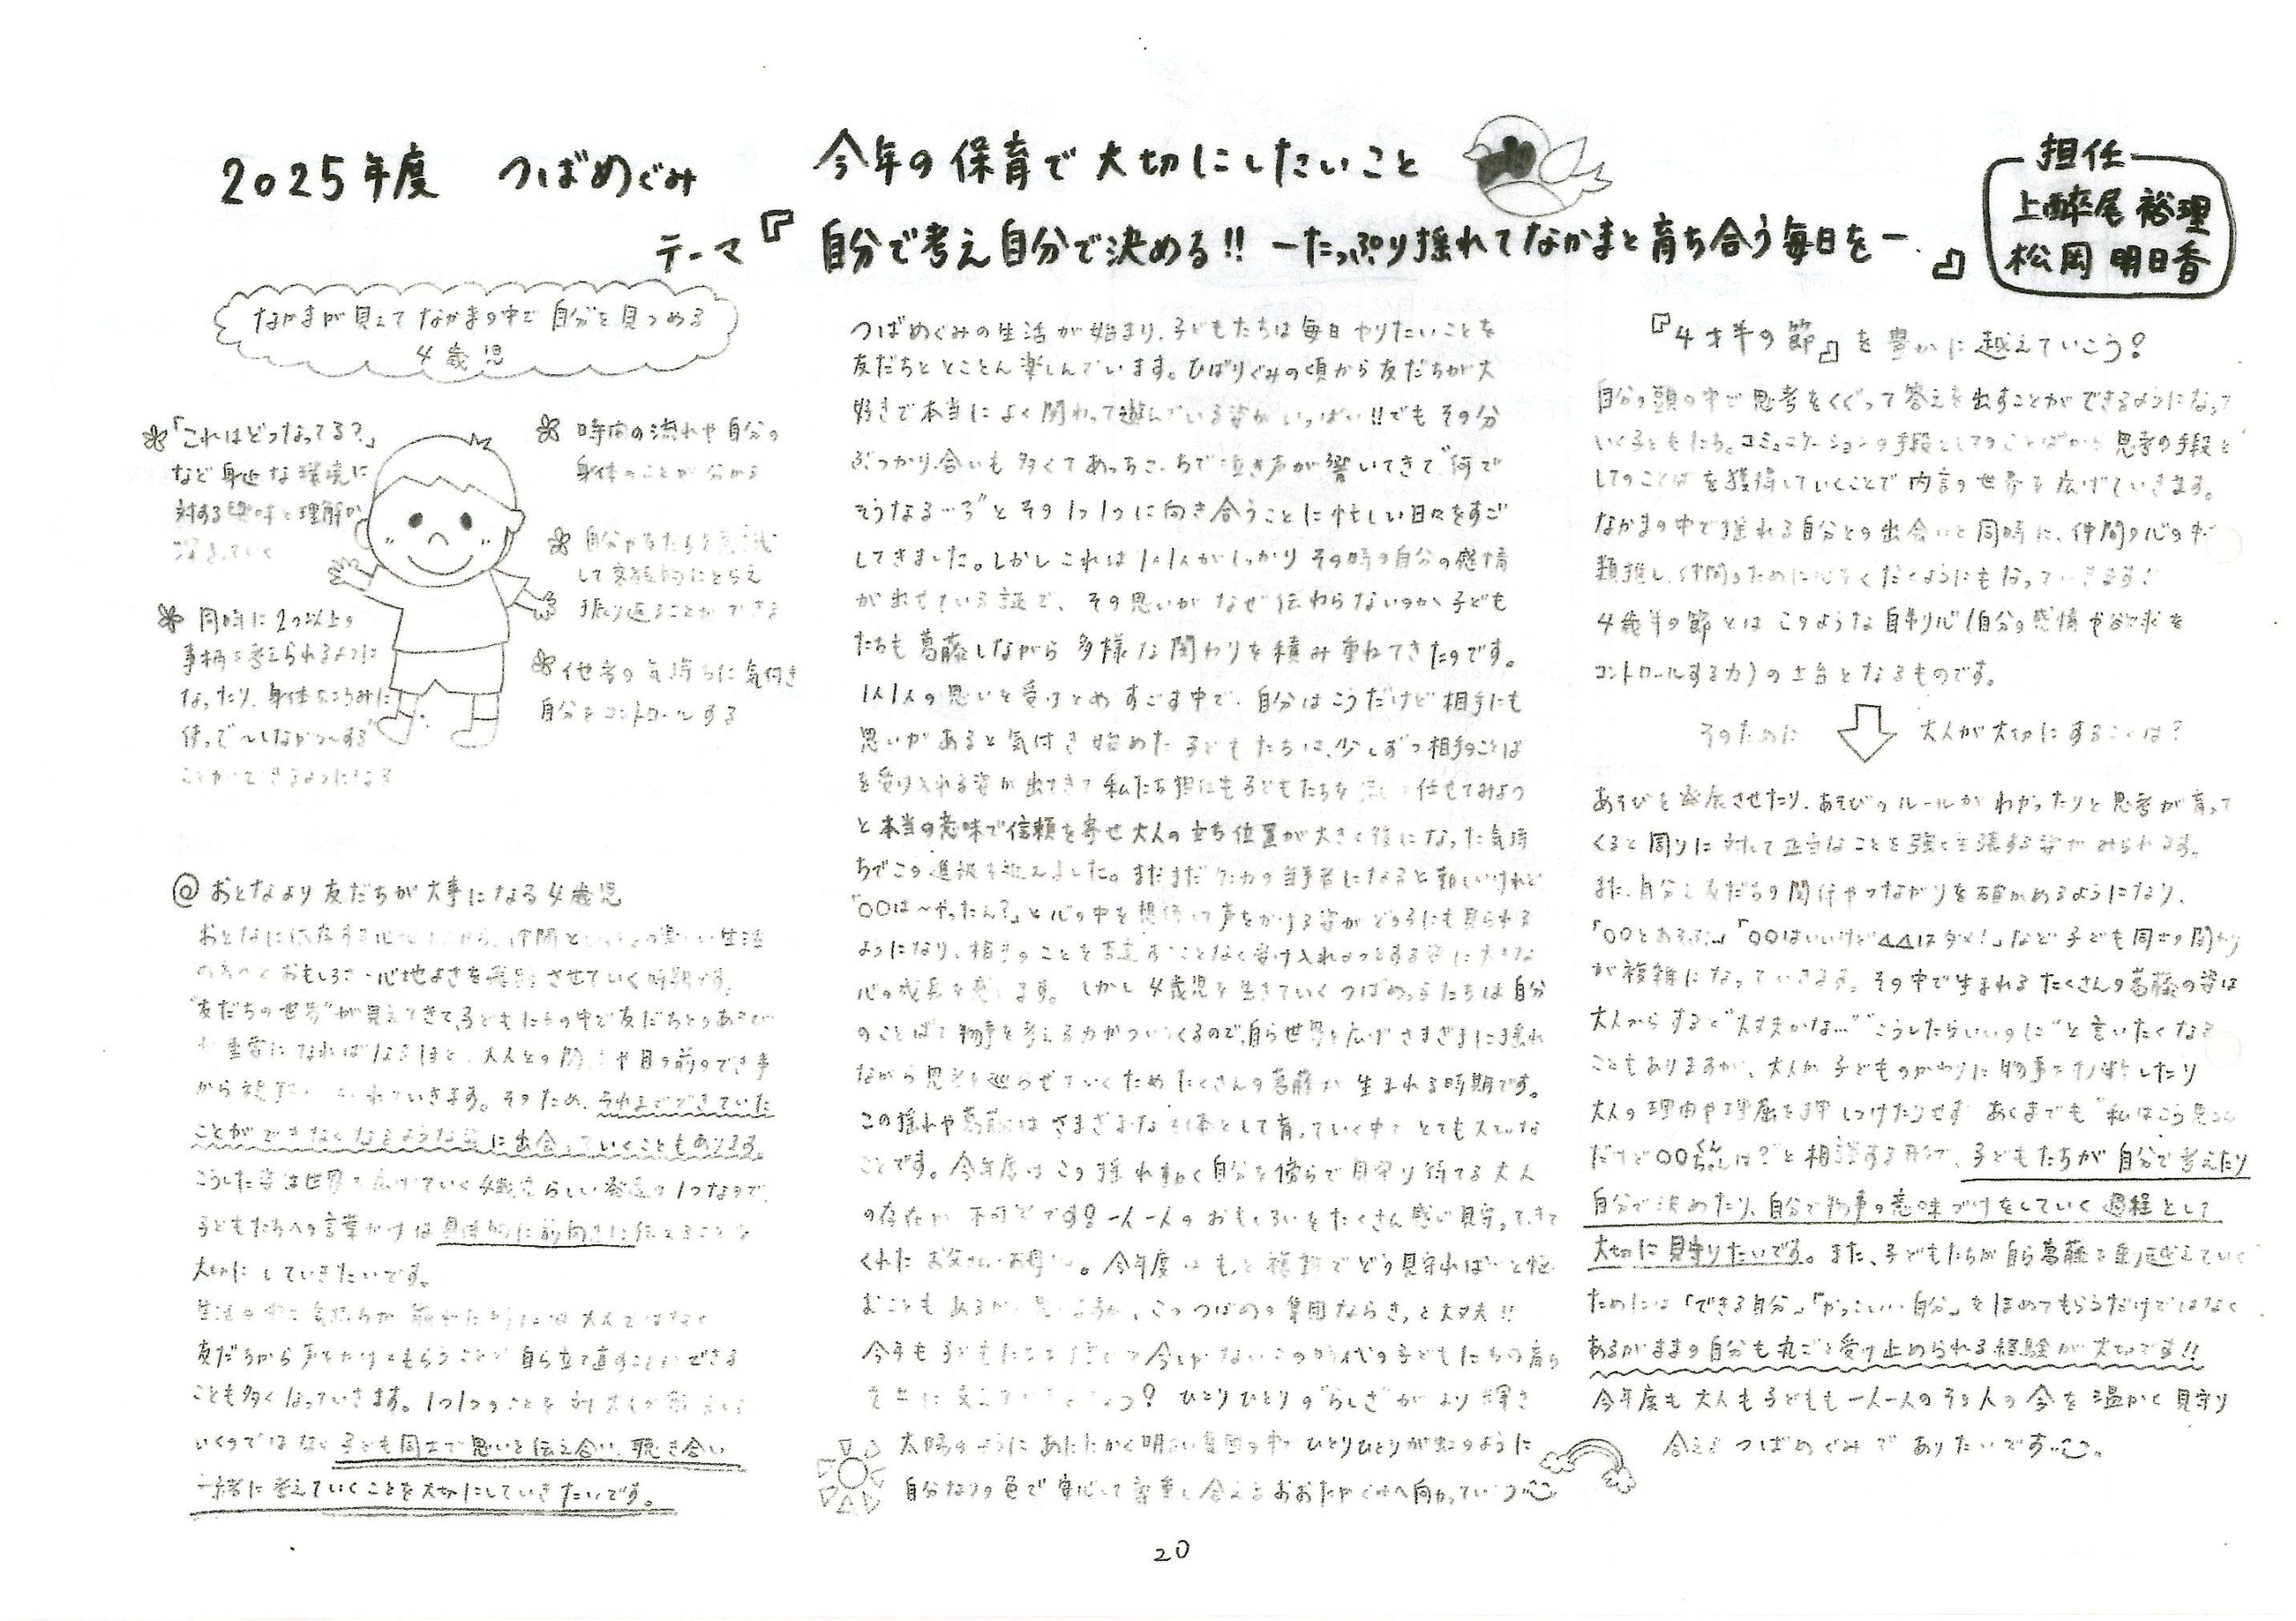 2025年度 つばめぐみ 今年の保育で大切にしたいこと
テーマ『自分で考え自分で決める!! ーたっぷり揺れてなかまと育ち合う毎日をー』
担任
上酔尾 裕理
松岡 明日香
なかまが見えて なかまの中で 自分を見つめる
4歳児
「これはどうなってる?」
など身近な環境に
対する興味と理解が
深まっていく
同時に2つ以上の
事柄を考えられるように
なったり、身体をこうみに
使って〜しながら〜する
ことができるようになる
時間の流れや自分の
身体のことが分かる
自分やなたちを意識
して客観的にとらえ
振り返ることができる
他者の気持ちに気付き
自分をコントロールする
@おとなより友だちが大事になる4歳児
おとなに依存する 仲間といっしょの楽しい生活
の方へと おもしろさ・心地よさを させていく時期です。
"友だちの世界"が見えてきて、子どもたちの中で友だちとのあそびが
重要になればなるほど、大人との関 や目の前のでき事
から れていきます。そのため、それまでできていた
ことができなくなるような姿に出会っていくこともあります。
こうした姿は世界を広げていく4歳児らしい発達の1つなので、
子どもたちへの言葉かけは具体的に前向きに伝えることを
大切にしていきたいです。
生活の中で気持ちが は大人ではなく
友だちから声をかけてもらうことで自ら立て直すことができる
ことも多くなっていきます。1つ1つのことを対大人で
いくのではなく子ども同士で思いを伝え合い、聴き合い
一緒に考えていくことを大切にしていきたいです。
つばめぐみの生活が始まり、子どもたちは毎日やりたいことを
友だちととことん楽しんでいます。ひばりぐみの頃から友だちが大
好きで本当によく関わって遊んでいる姿がいっぱい!!でもその分
ぶつかり合いも多くてあっちこっちで泣き声が響いてきて"何で
そうなる…ろ"とその1つ1つに向き合うことに忙しい日々をすご
してきました。しかしこれは1人1人がしっかりその時の自分の感情
が出せている証で、その思いがなぜ伝わらないのか、子ども
たちも葛藤しながら多様な関わりを積み重ねてきたのです。
1人1人の思いを受けとめすごす中で、自分はこうだけど相手にも
思いがあると気付き始めた子どもたちは、少しずつ相手のことば
を受け入れる姿が出てきて私たち担任も子どもたちを 任せてみよう
と本当の意味で信頼を寄せ大人の立ち位置が大きく後になった気持
ちでこの進級を迎えました。まだまだ の当事者になると難しいけれど
「〇〇は〜やったん?」と心の中を想像して声をかける姿がどの子にも見られる
ようになり、相手のことを否定することなく受け入れようとする姿に大きな
心の成長を感じます。しかし4歳児を生きていくつばめっ子たちは自分
のことばで物事を考える力がついてくるので、自ら世界を広げさまざまに揺れ
ながら思考を巡らせていくためたくさんの葛藤が生まれる時期です。
この揺れや葛藤はさまざまな として育っていく中でとても大切な
ことです。今年度はこの揺れ動く自分を傍らで見守り待てる大人
の存在が不可欠です!一人一人のおもしろいをたくさん感じ見守ってきて
くれたお父さん・お母さん。今年度はもっと複雑でどう見守れば…と悩
むこともあるかと思いますが、このつばめの集団ならきっと大丈夫!!
今年も子どもたちを信じて今しかないこの時代の子どもたちの育ち
を共に支えていきましょう!ひとりひとりの"らしさ"がより輝き
太陽のようにあたたかく明るい集団の中でひとりひとりが虹のように
自分なりの色で安心して尊重し合えるおおたかぐみへ向かっていこう
『4才半の節』を豊かに越えていこう!
自分の頭の中で思考をくぐって答えを出すことができるようになって
いく子どもたち。コミュニケーションの手段としてのことばから思考の手段と
してのことばを獲得していくことで内言の世界を広げていきます。
なかまの中で揺れる自分との出会いと同時に、仲間の心の中
類推し、仲間のために心をくだくようにもなっていきます!
4歳半の節とはこのような自制心(自分の感情や欲求を
コントロールする力)の土台となるものです。
そのために 大人が大切にすることは?
あそびを発展させたり、あそびのルールがわかったりと思考が育って
くると周りに対して正当なことを強く主張する姿がみられます。
また、自分と友だちの関係やつながりを確かめるようになり、
「〇〇とあそぶ」「〇〇はいいけど△△はダメ!」など子ども同士の関わり
が複雑になっていきます。その中で生まれるたくさんの葛藤の姿は
大人からすると"大丈夫かな…""こうしたらいいのに"と言いたくなる
こともありますが、大人が子どものかわりに物事を判断したり
大人の理由や理屈を押しつけたりせずあくまでも"私はこう思うん
だけど〇〇ちゃんは?"と相談する形で、子どもたちが自分で考えたり
自分で決めたり、自分で物事の意味づけをしていく過程として
大切に見守りたいです。また、子どもたちが自ら葛藤を乗り越えていく
ためには「できる自分」「かっこいい自分」をほめてもらうだけではなく
あるがままの自分も丸ごと受け止められる経験が大切です!!
今年度も大人も子どもも一人一人のその人の今を温かく見守り
合えるつばめぐみでありたいです。
20